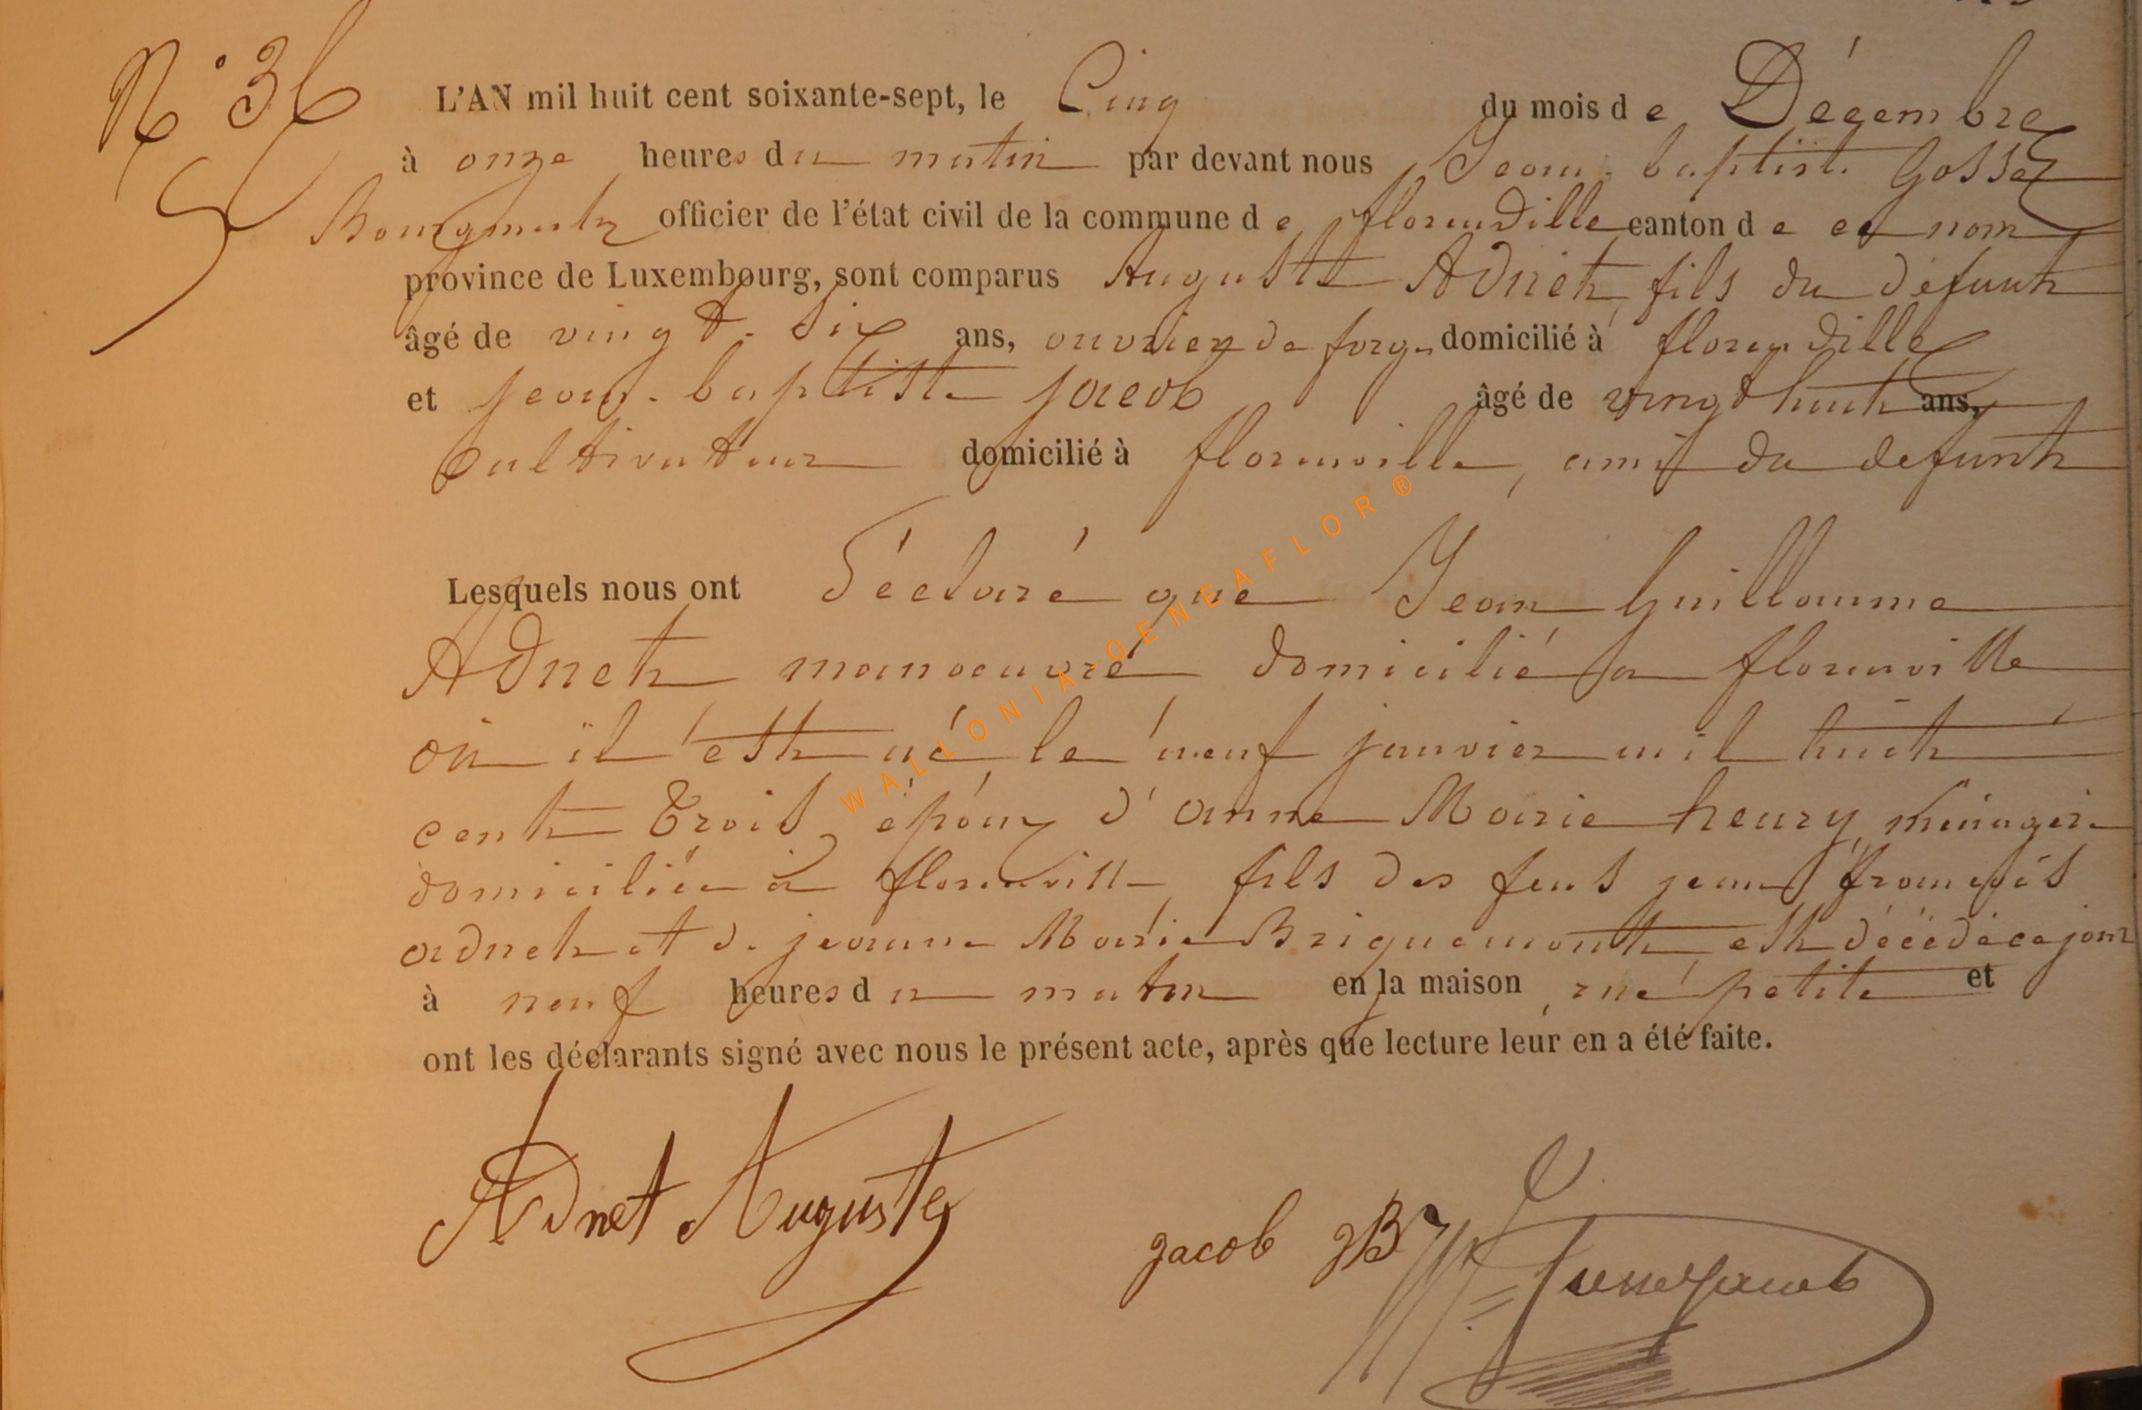 N° 36
L'AN mil huit cent soixante-sept, le Cinq du mois de Décembre
à onze heures du matin par devant nous Jean-baptiste Gosse
Bourgmestre officier de l'état civil de la commune de florenville canton de ce nom
province de Luxembourg, sont comparus Auguste Adnet, fils du défunt
âgé de vingt-six ans, ouvrier de forge domicilié à florenville
et jean-baptiste jacob âgé de vingt huit ans,
cultivateur domicilié à florenville, ami du defunt
Lesquels nous ont déclaré que Jean Guillaume
Adnet manoeuvre domicilié a florenville
où il est né le neuf janvier mil huit
cent trois, époux d'anne Marie henry, ménagère
domiciliée à florenville, fils des feus jean françois
adnet et de jeanne Marie Briquemont, est décédé ce jour
à neuf heures du matin en la maison rue petite et
ont les déclarants signé avec nous le présent acte, après que lecture leur en a été faite.
Adnet Auguste
jacob JB
WALLONIA-GENEAFLOR®